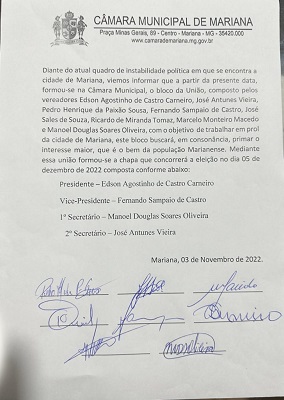 CÂMARA MUNICIPAL DE MARIANA
Praça Minas Gerais, 89 - Centro - Mariana - MG - 35420.000
www.camarademariana.mg.gov.br
Diante do atual quadro de instabilidade política em que se encontra a
cidade de Mariana, viemos informar que a partir da presente data,
formou-se na Câmara Municipal, o bloco da União, composto pelos
vereadores Edson Agostinho de Castro Carneiro, José Antunes Vieira,
Pedro Henrique da Paixão Sousa, Fernando Sampaio de Castro, José
Sales de Souza, Ricardo de Miranda Tomaz, Marcelo Monteiro Macedo
e Manoel Douglas Soares Oliveira, com o objetivo de trabalhar em prol
da cidade de Mariana, este bloco buscará, em consonância, primar o
interesse maior, que é o bem da população Marianense. Mediante
essa união formou-se a chapa que concorrerá a eleição no dia 05 de
dezembro de 2022 composta conforme abaixo:
Presidente – Edson Agostinho de Castro Carneiro
Vice-Presidente – Fernando Sampaio de Castro
1º Secretário – Manoel Douglas Soares Oliveira
2º Secretário – José Antunes Vieira
Mariana, 03 de Novembro de 2022.